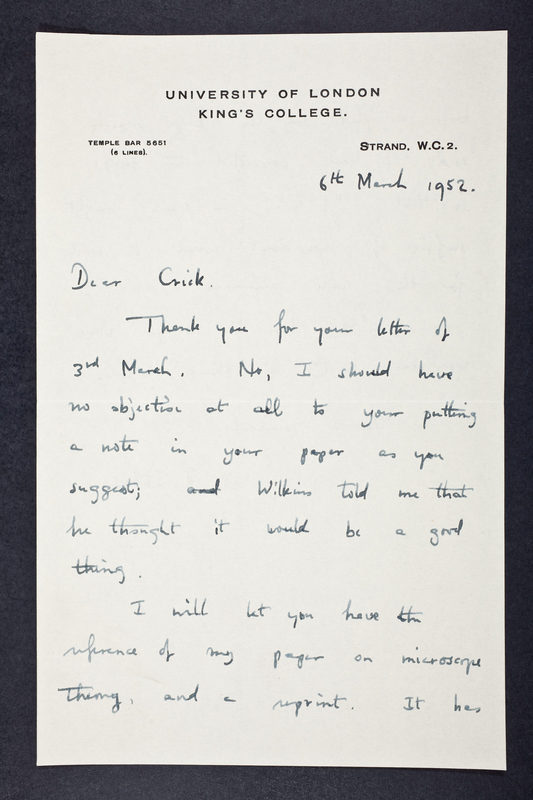 UNIVERSITY OF LONDON
KING'S COLLEGE.
TEMPLE BAR 5651
(6 LINES).
STRAND, W.C.2.
6th March 1952.
Dear Crick.
Thank you for your letter of
3rd March. No, I should have
no objection at all to your putting
a note in your paper as you
suggest; and Wilkins told me that
he thought it would be a good
thing.
I will let you have the
reference of my paper on microscope
theory, and a reprint. It has